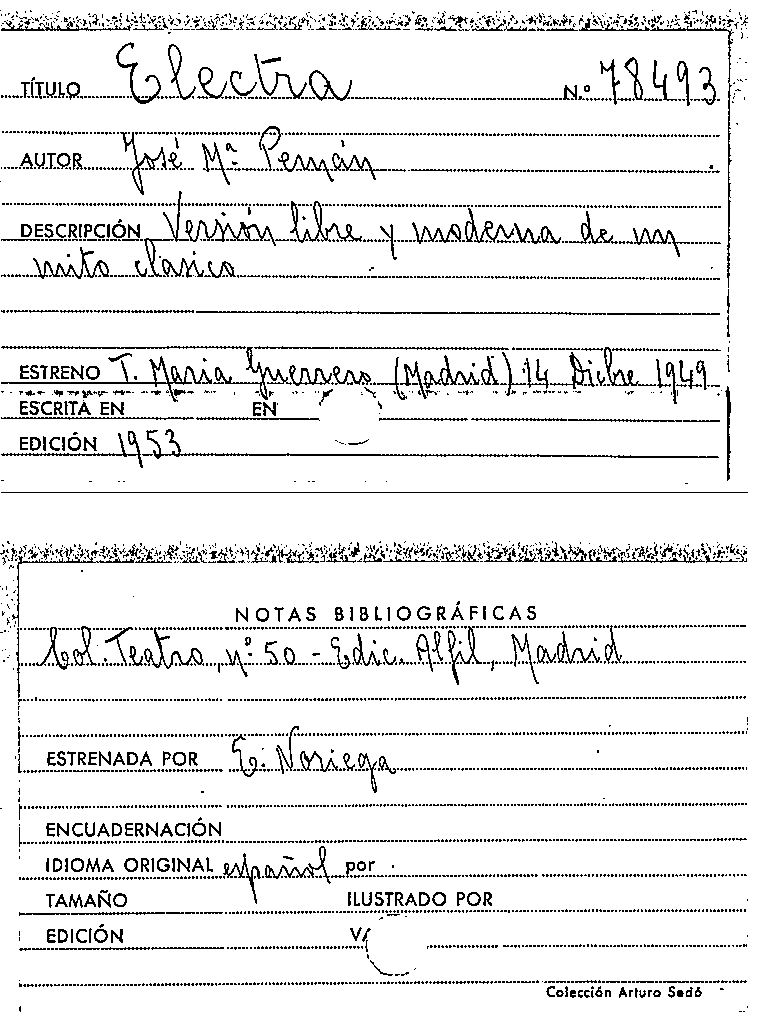 TÍTULO Electra N.º 78493
AUTOR José Mª Pemán
DESCRIPCIÓN Versión libre y moderna de un
mito clásico
ESTRENO T. Maria Guerrero (Madrid) 14 Dicbre 1949
ESCRITA EN EN
EDICIÓN 1953
NOTAS BIBLIOGRÁFICAS
Col. Teatro, nº 50 - Edic. Alfil, Madrid
ESTRENADA POR E. Noriega
ENCUADERNACIÓN
IDIOMA ORIGINAL español por
TAMAÑO ILUSTRADO POR
EDICIÓN
Colección Arturo Sedó